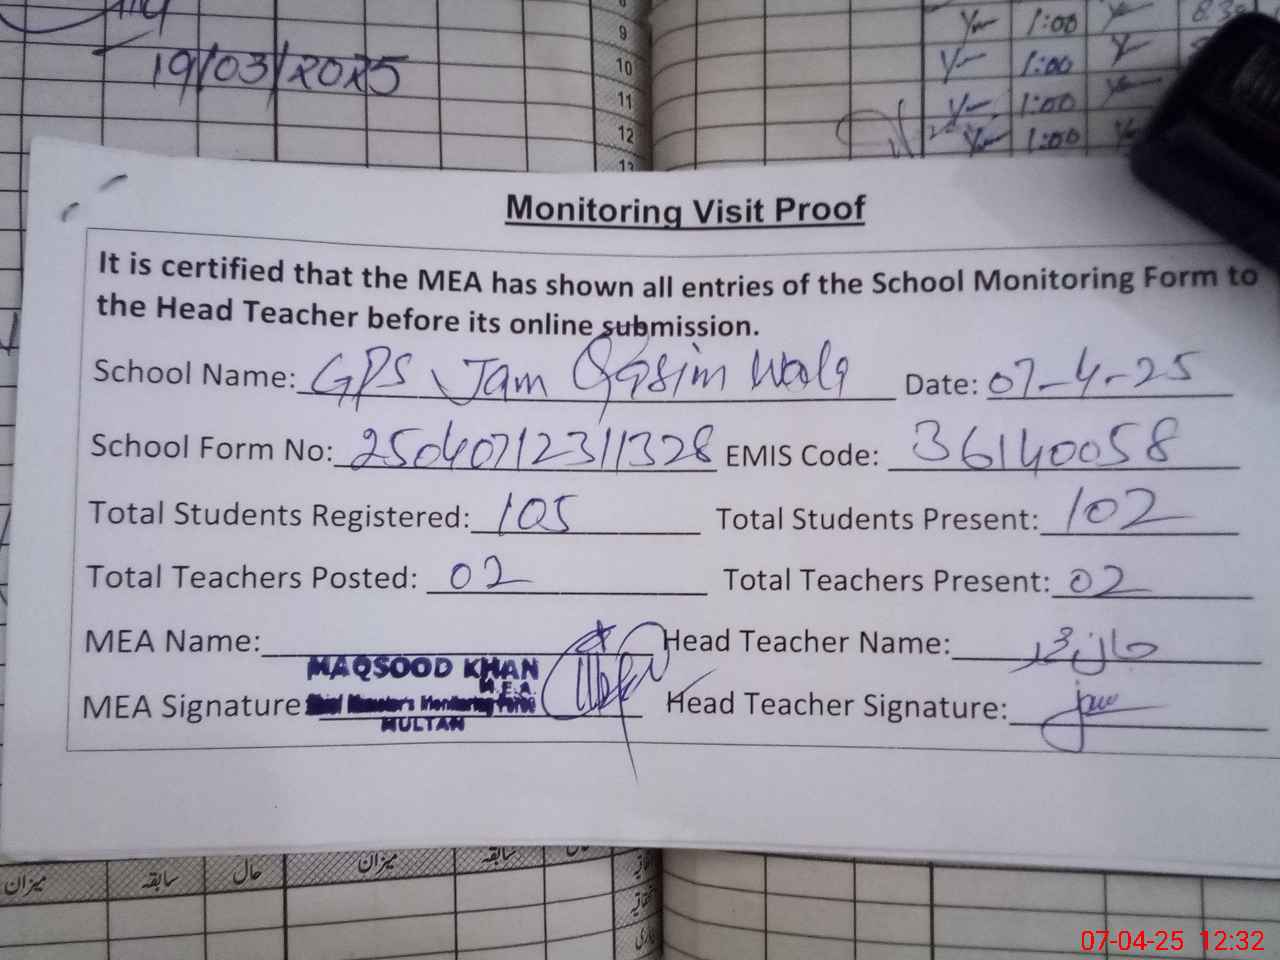 19/03/2025
8
9
10
11
12
13
1:00 8:30
1:00
1:00
1:00
Monitoring Visit Proof
It is certified that the MEA has shown all entries of the School Monitoring Form to
the Head Teacher before its online submission.
School Name: GPS Jam Qasim Wala Date: 07-4-25
School Form No: 25040712311328 EMIS Code: 36140058
Total Students Registered: 105 Total Students Present: 102
Total Teachers Posted: 02 Total Teachers Present: 02
MEA Name: Head Teacher Name: جان محمد
MAQSOOD KHAN
M.E.A
MEA Signature Chief Minister's Monitoring Force Head Teacher Signature:
MULTAN
میزان سابقہ حال میزان سابقہ حال
07-04-25 12:32